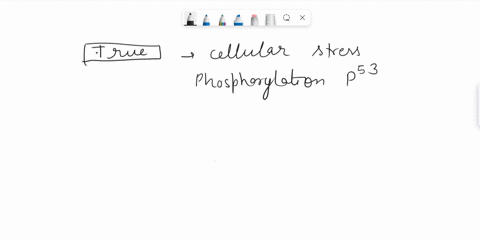 True → cellular stress
Phosphorylation P53